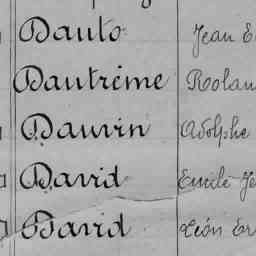 Dauto Jean E
Dautrème Rolan
Dauvin Adolphe
David Emile Je
David Léon Er